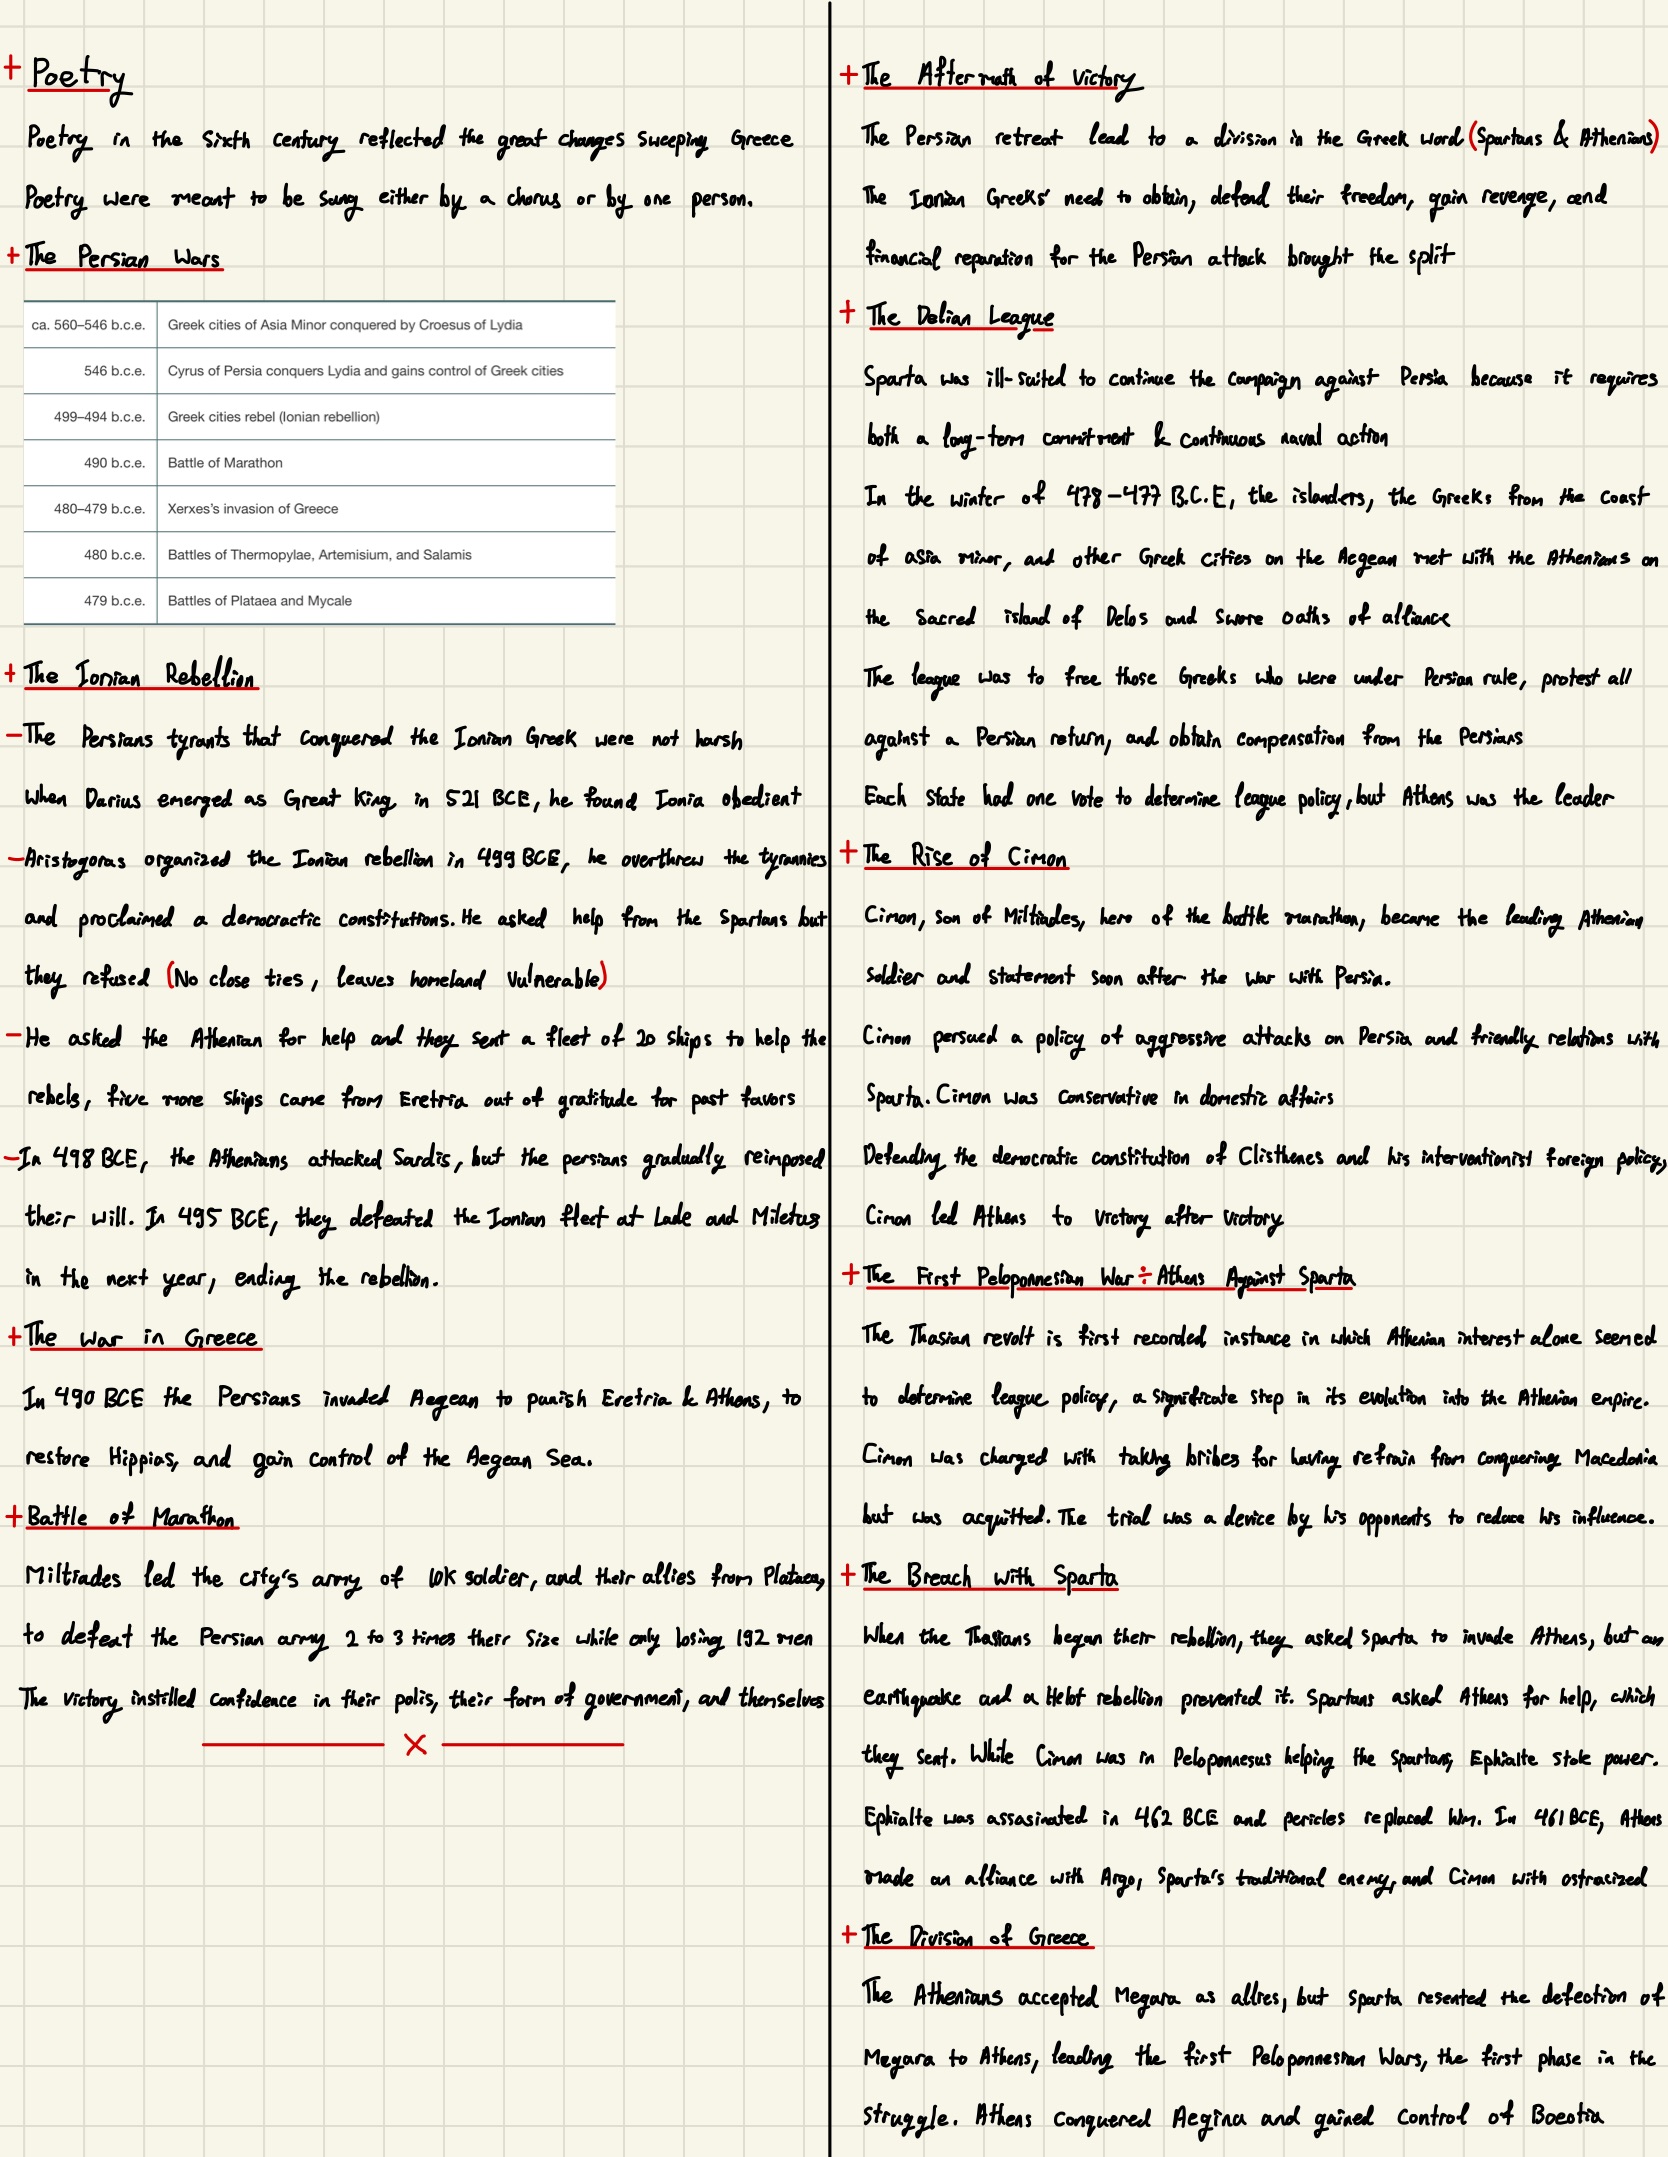 + Poetry
Poetry in the Sixth century reflected the great changes sweeping Greece
Poetry were meant to be sung either by a chorus or by one person.
+ The Persian Wars
ca. 560–546 b.c.e. Greek cities of Asia Minor conquered by Croesus of Lydia
546 b.c.e. Cyrus of Persia conquers Lydia and gains control of Greek cities
499–494 b.c.e. Greek cities rebel (Ionian rebellion)
490 b.c.e. Battle of Marathon
480–479 b.c.e. Xerxes's invasion of Greece
480 b.c.e. Battles of Thermopylae, Artemisium, and Salamis
479 b.c.e. Battles of Plataea and Mycale
+ The Ionian Rebellion
– The Persians tyrants that conquered the Ionian Greek were not harsh
When Darius emerged as Great King in 521 BCE, he found Ionia obedient
– Aristogoras organized the Ionian rebellion in 499 BCE, he overthrew the tyrannies
and proclaimed a democractic constitutions. He asked help from the Spartans but
they refused (No close ties, leaves homeland Vulnerable)
– He asked the Athenian for help and they sent a fleet of 20 ships to help the
rebels, five more ships came from Eretria out of gratitude for past favors
– In 498 BCE, the Athenians attacked Sardis, but the persians gradually reimposed
their will. In 495 BCE, they defeated the Ionian fleet at Lade and Miletus
in the next year, ending the rebellion.
+ The War in Greece
In 490 BCE the Persians invaded Aegean to punish Eretria & Athens, to
restore Hippias, and gain control of the Aegean Sea.
+ Battle of Marathon
Miltiades led the city's army of 10K soldier, and their allies from Plataea,
to defeat the Persian army 2 to 3 times their Size while only losing 192 men
The victory instilled confidence in their polis, their form of government, and themselves
X
+ The Aftermath of Victory
The Persian retreat lead to a division in the Greek word (Spartans & Athenians)
The Ionian Greeks' need to obtain, defend their freedom, gain revenge, and
financial reparation for the Persian attack brought the split
+ The Delian League
Sparta was ill-suited to continue the campaign against Persia because it requires
both a long-term commitment & continuous naval action
In the winter of 478–477 B.C.E, the islanders, the Greeks from the coast
of asia minor, and other Greek cities on the Aegean met with the Athenians on
the Sacred island of Delos and swore oaths of alliance
The league was to free those Greeks who were under Persian rule, protest all
against a Persian return, and obtain compensation from the Persians
Each State had one vote to determine league policy, but Athens was the leader
+ The Rise of Cimon
Cimon, son of Miltiades, hero of the battle marathon, became the leading Athenian
soldier and statement soon after the war with Persia.
Cimon persued a policy of aggressive attacks on Persia and friendly relations with
Sparta. Cimon was Conservative in domestic affairs
Defending the democratic constitution of Clisthenes and his interventionist foreign policy,
Cimon led Athens to victory after victory
+ The First Peloponnesian War ÷ Athens Against Sparta
The Thasian revolt is first recorded instance in which Athenian interest alone seemed
to determine league policy, a significate step in its evolution into the Athenian empire.
Cimon was charged with taking bribes for having refrain from conquering Macedonia
but was acquitted. The trial was a device by his opponents to reduce his influence.
+ The Breach with Sparta
When the Thasians began their rebellion, they asked Sparta to invade Athens, but an
earthquake and a Helot rebellion prevented it. Spartans asked Athens for help, which
they sent. While Cimon was in Peloponnesus helping the Spartans, Ephialte stole power.
Ephialte was assasinated in 462 BCE and pericles replaced him. In 461 BCE, Athens
made an alliance with Argo, Sparta's traditional enemy, and Cimon with ostracized
+ The Division of Greece
The Athenians accepted Megara as allies, but Sparta resented the defection of
Megara to Athens, leading the first Peloponnesian Wars, the first phase in the
struggle. Athens conquered Aegina and gained control of Boeotia